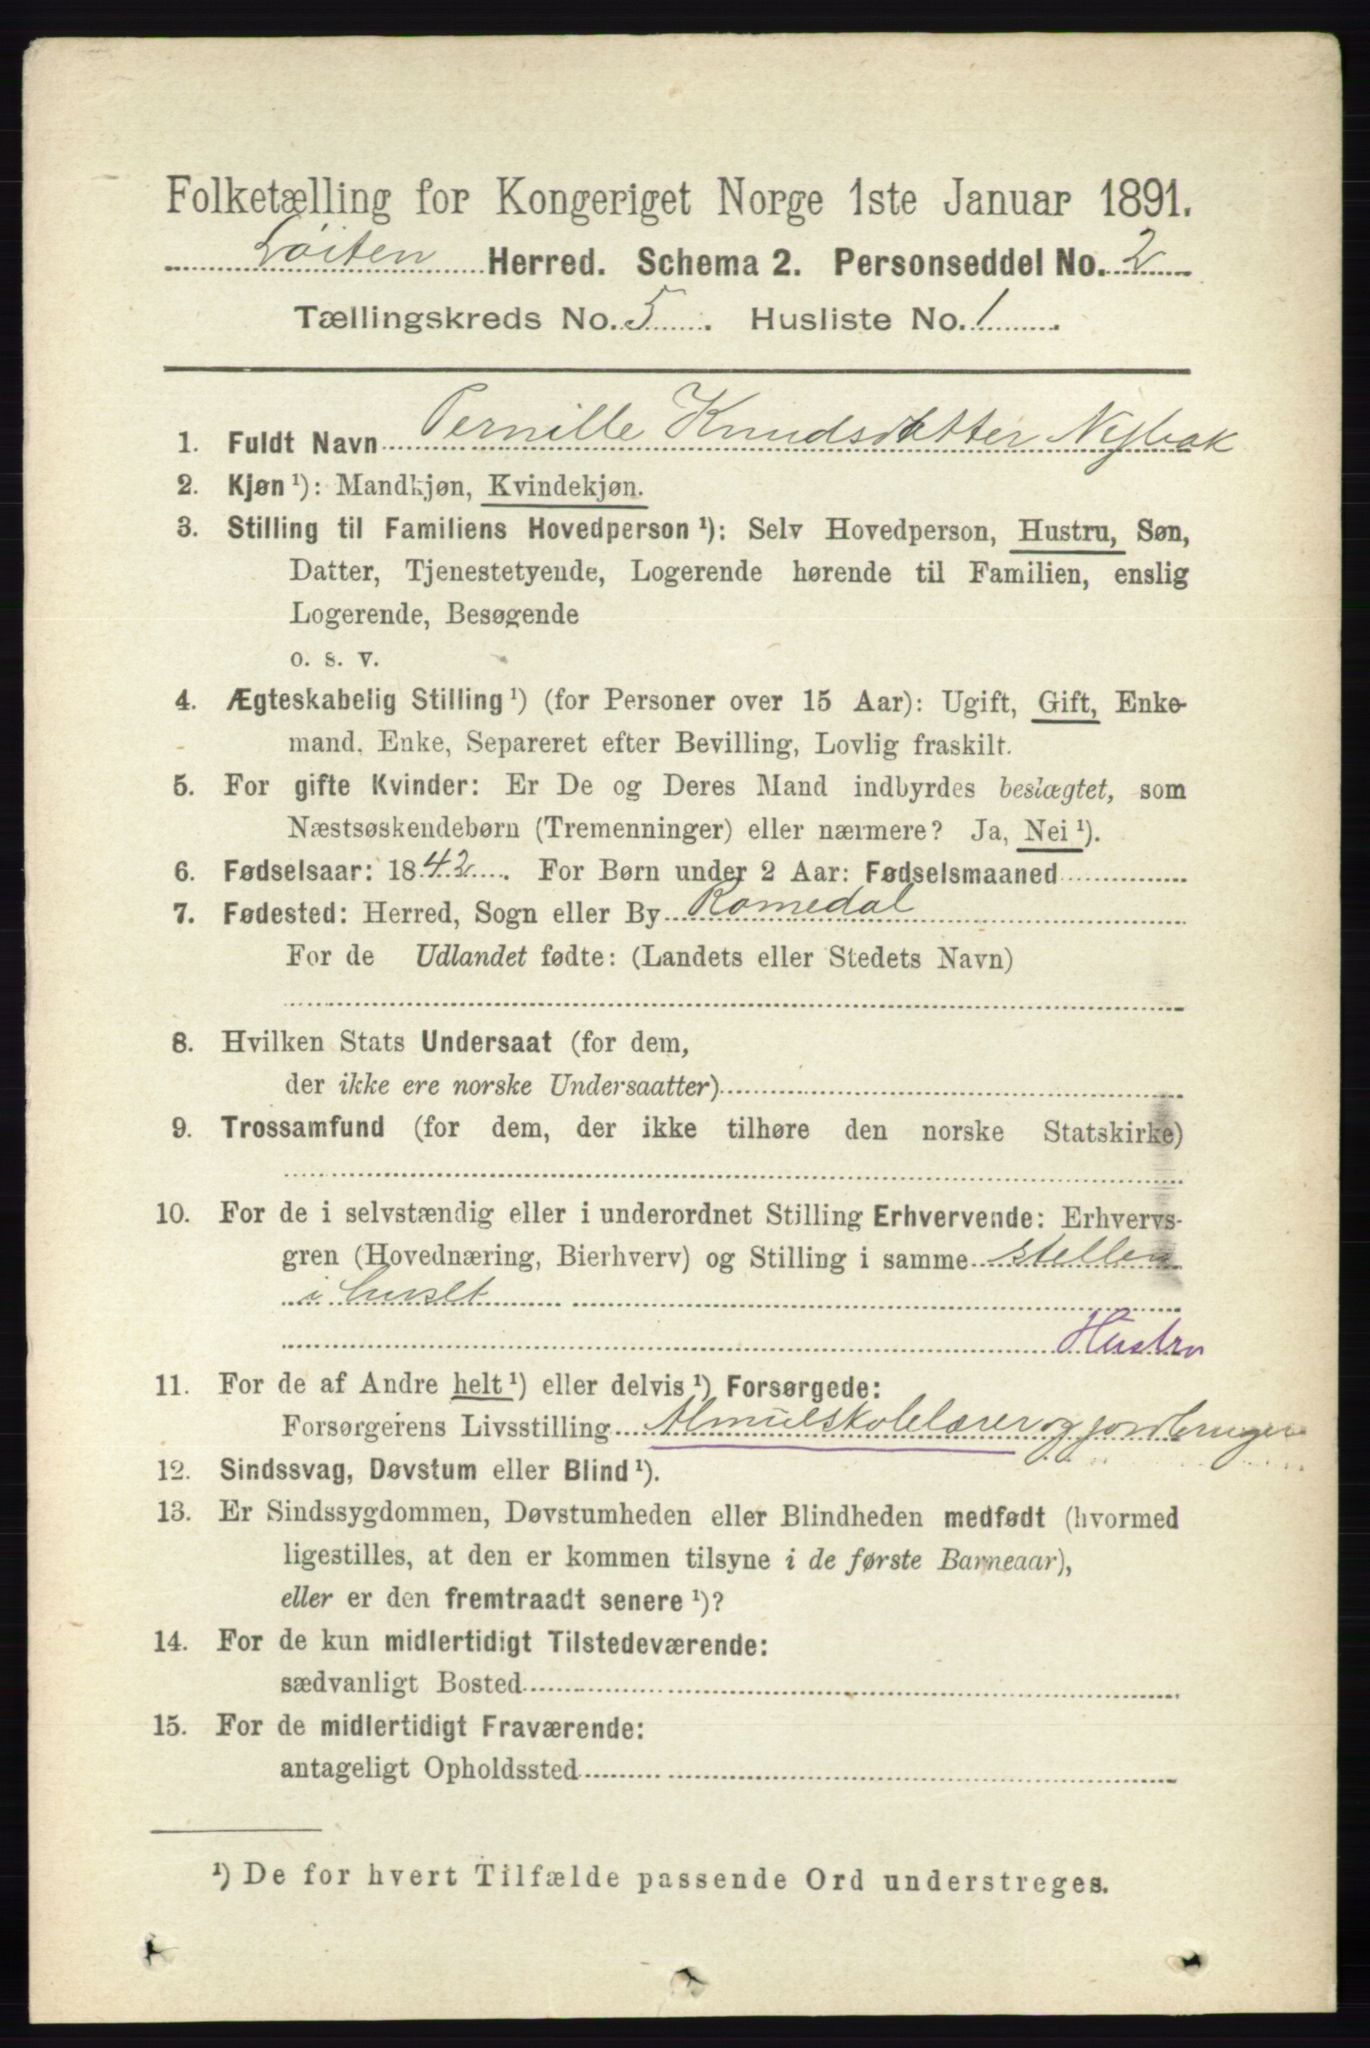 Folketælling for Kongeriget Norge 1ste Januar 1891.
Löiten Herred. Schema 2. Personseddel No. 2
Tællingskreds No. 5. Husliste No. 1.
1. Fuldt Navn Pernille Knudsdatter Nybak
2. Kjøn ¹): Mandkjøn, Kvindekjøn.
3. Stilling til Familiens Hovedperson ¹): Selv Hovedperson, Hustru, Søn,
Datter, Tjenestetyende, Logerende hørende til Familien, enslig
Logerende, Besøgende
o. s. v.
4. Ægteskabelig Stilling ¹) (for Personer over 15 Aar): Ugift, Gift, Enke-
mand, Enke, Separeret efter Bevilling, Lovlig fraskilt.
5. For gifte Kvinder: Er De og Deres Mand indbyrdes beslægtet, som
Næstsøskendebørn (Tremenninger) eller nærmere? Ja, Nei ¹).
6. Fødselsaar: 1842. For Børn under 2 Aar: Fødselsmaaned
7. Fødested: Herred, Sogn eller By Romedal
For de Udlandet fødte: (Landets eller Stedets Navn)
8. Hvilken Stats Undersaat (for dem,
der ikke ere norske Undersaatter)
9. Trossamfund (for dem, der ikke tilhøre den norske Statskirke)
10. For de i selvstændig eller i underordnet Stilling Erhvervende: Erhvervs-
gren (Hovednæring, Bierhverv) og Stilling i samme steller
i huset
Hustru
11. For de af Andre helt ¹) eller delvis ¹) Forsørgede:
Forsørgerens Livsstilling Almuskolelærer og jordbruger
12. Sindssvag, Døvstum eller Blind ¹).
13. Er Sindssygdommen, Døvstumheden eller Blindheden medfødt (hvormed
ligestilles, at den er kommen tilsyne i de første Barneaar),
eller er den fremtraadt senere ¹)?
14. For de kun midlertidigt Tilstedeværende:
sædvanligt Bosted
15. For de midlertidigt Fraværende:
antageligt Opholdssted
¹) De for hvert Tilfælde passende Ord understreges.